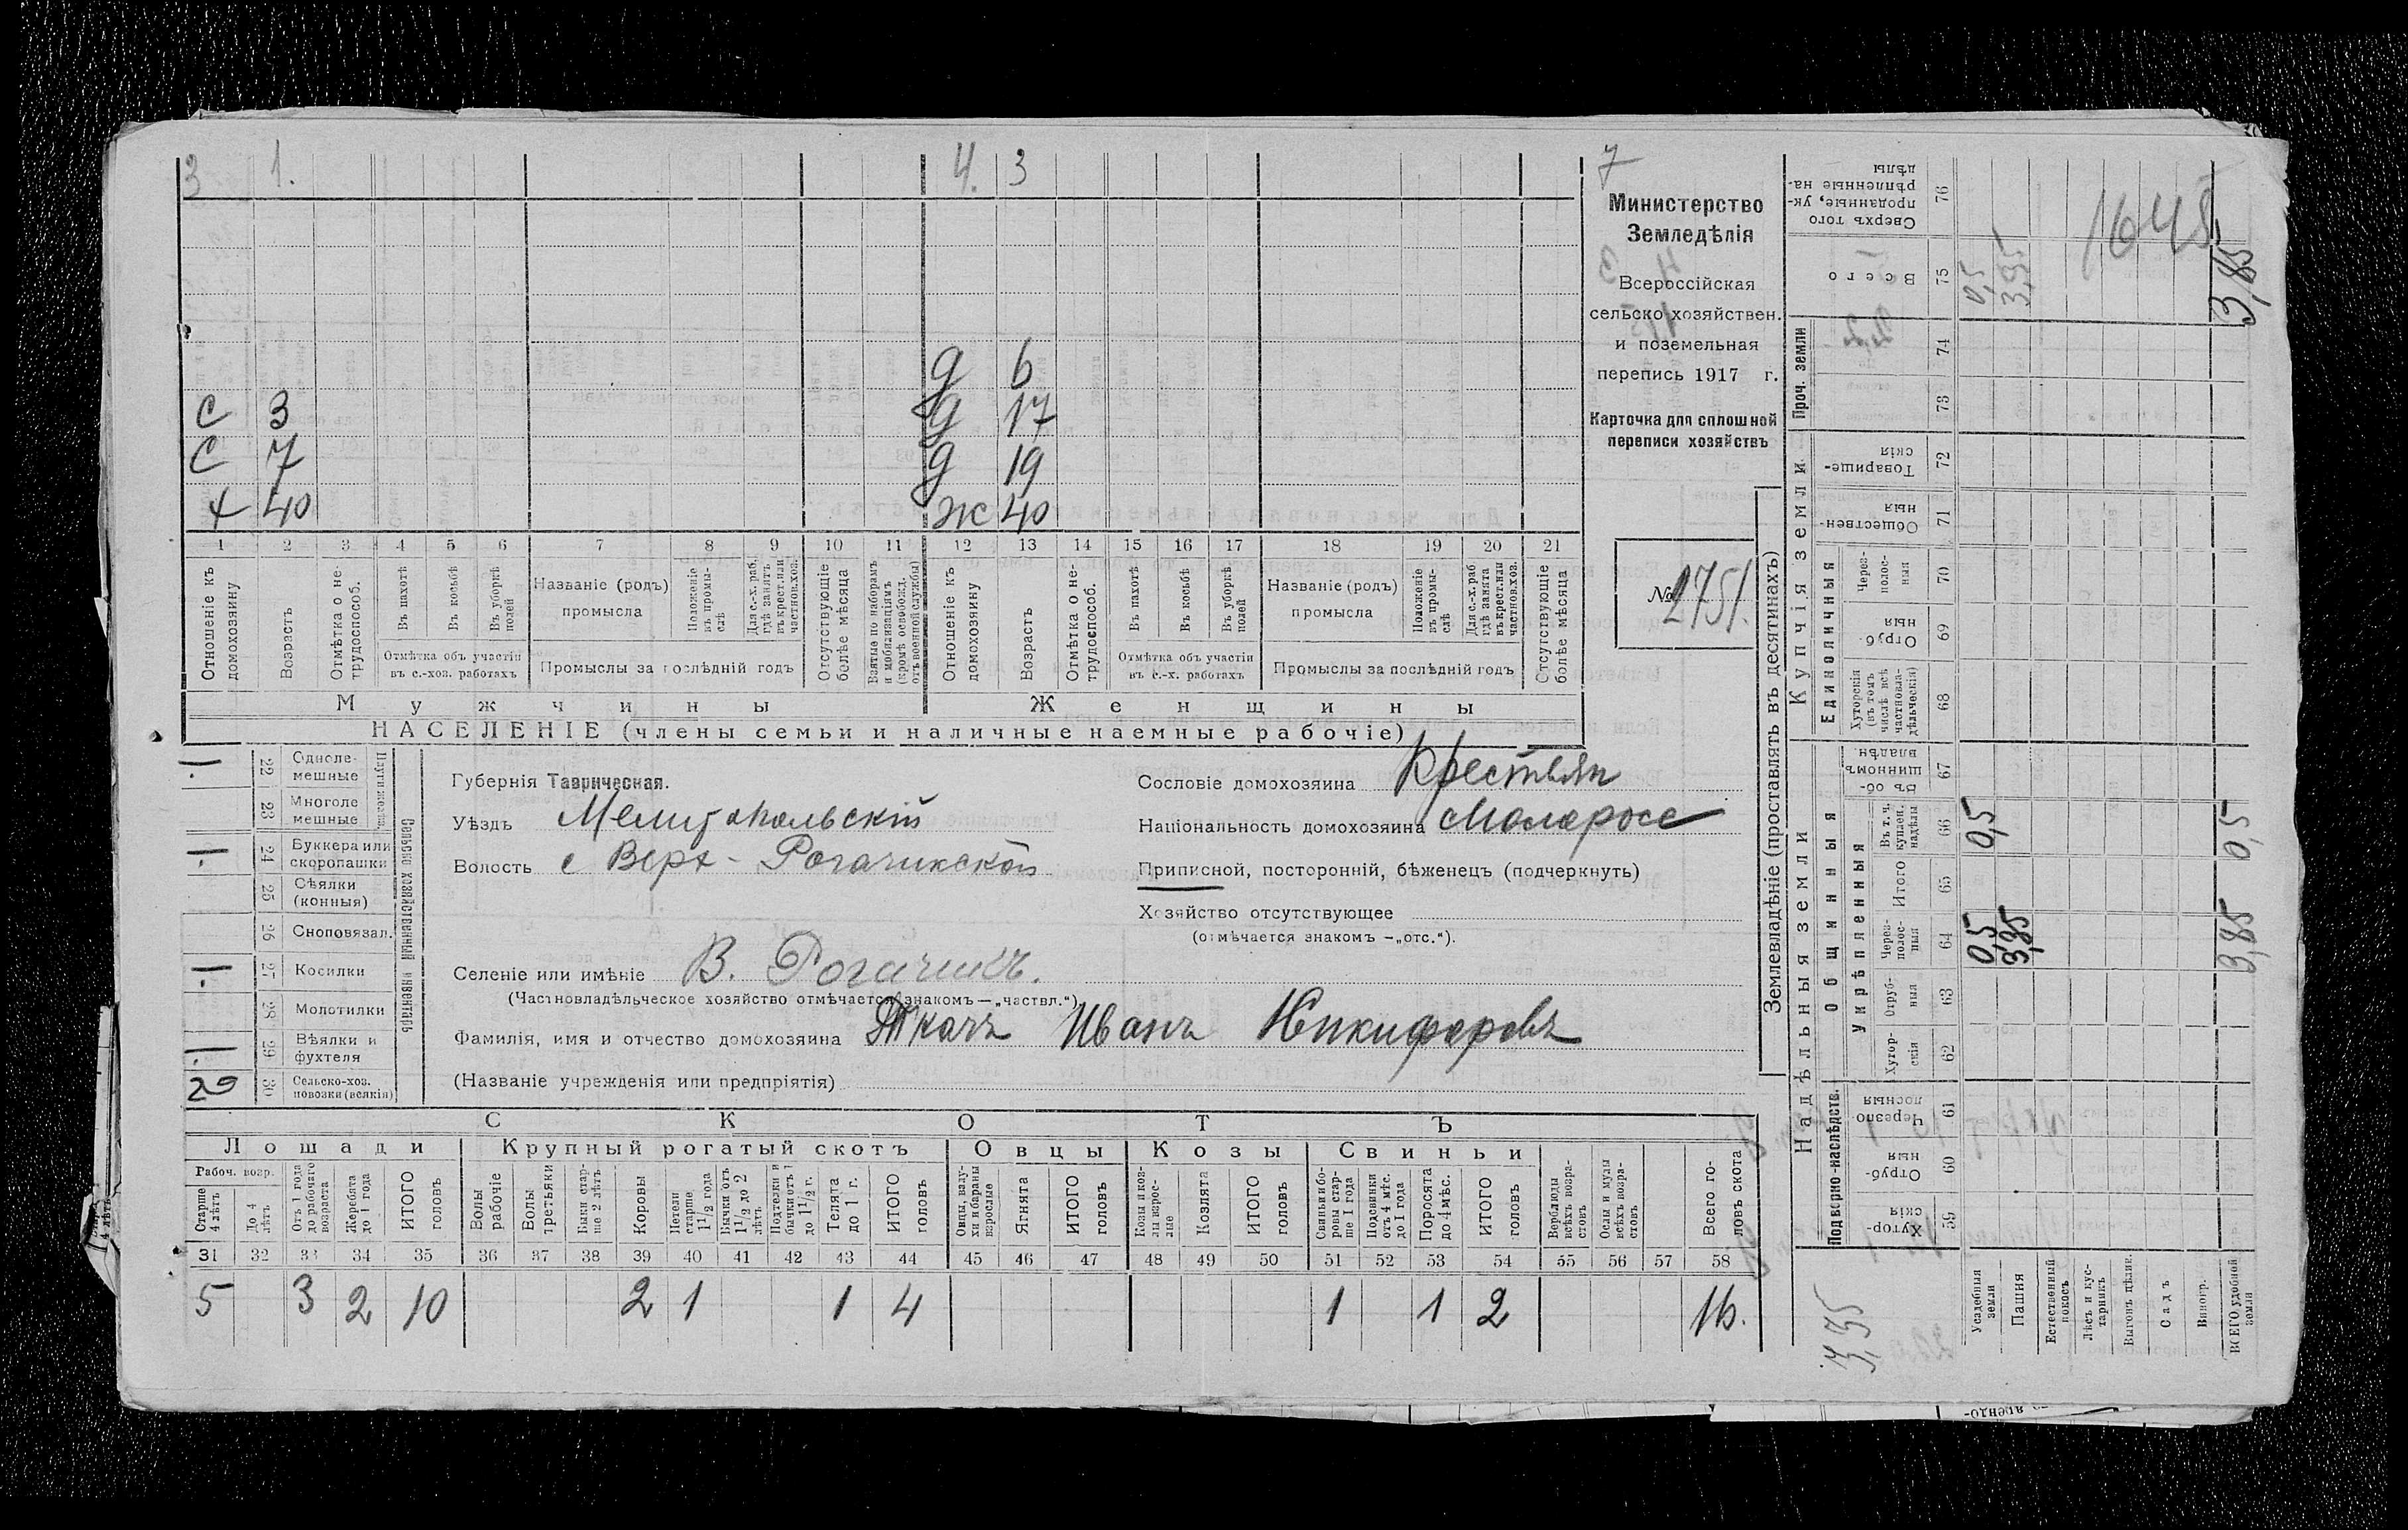 3 1. 4. 3
д 6
с 3 д 17
с 7 д 19
х 40 ж 40
1 2 3 4 5 6 7 8 9 10 11 12 13 14 15 16 17 18 19 20 21
Отношеніе къ домохозяину
Возрастъ
Отмѣтка о не-трудоспособ.
Въ пахотѣ
Въ косьбѣ
Въ уборкѣ полей
Отмѣтка объ участіи въ с.-хоз. работахъ
Названіе (родъ) промысла
Положеніе въ промы-слѣ
Для с.-х. раб. гдѣ занятъ въ крест. или частнов. хоз.
Промыслы за послѣдній годъ
Отсутствующіе болѣе мѣсяца
Взятые по наборамъ и мобилизаціямъ (кромѣ освобожд. отъ военной службы)
Отношеніе къ домохозяину
Возрастъ
Отмѣтка о не-трудоспособ.
Въ пахотѣ
Въ косьбѣ
Въ уборкѣ полей
Отмѣтка объ участіи въ с.-х. работахъ
Названіе (родъ) промысла
Положеніе въ промы-слѣ
Для с.-х. раб. гдѣ занята въ крест. или частнов. хоз.
Промыслы за послѣдній годъ
Отсутствующіе болѣе мѣсяца
Мужчины Женщины
НАСЕЛЕНІЕ (члены семьи и наличные наемные рабочіе)
7
Министерство
Земледѣлія
Всероссійская
сельско хозяйствен.
и поземельная
перепись 1917 г.
Карточка для сплошной
переписи хозяйствъ
№ 2751.
Сельско хозяйственный инвентарь
1 22 Одноле-мешные
23 Многоле мешные
1 24 Буккера или скоропашки
25 Сѣялки (конныя)
26 Сноповязал.
1 27 Косилки
28 Молотилки
1 29 Вѣялки и фухтеля
30 Сельско-хоз. повозки (всякія)
Губернія Таврическая.
Уѣздъ Мелитопольскій
Волость с Верх-Рогачикской
Селеніе или имѣніе В. Рогачикъ.
(Частновладѣльческое хозяйство отмѣчается знакомъ — „частвл.“)
Фамилія, имя и отчество домохозяина Ткачъ Иванъ Никифоровъ
(Названіе учрежденія или предпріятія)
Сословіе домохозяина Крестьян
Національность домохозяина Малоросс
Приписной, посторонній, бѣженецъ (подчеркнуть)
Хозяйство отсутствующее
(отмѣчается знакомъ -„отс.“).
СКОТЪ
Лошади Крупный рогатый скотъ Овцы Козы Свиньи
Рабоч. возр.
Старше 4 лѣтъ
До 4 лѣтъ
Отъ 1 года до рабочаго возраста
Жеребята до 1 года
ИТОГО головъ
Волы рабочіе
Волы третьяки
Быки стар-ше 2 лѣтъ
Коровы
Нетели старше 1 1/2 года
Бычки отъ 1 1/2 до 2 лѣтъ
Подтелки и бычки отъ 1 до 1 1/2 г.
Телята до 1 г.
ИТОГО головъ
Овцы, валу-хи и бараны взрослые
Ягнята
ИТОГО головъ
Козы и коз-лы взрос-лые
Козлята
ИТОГО головъ
Свиньи и бо-ровы стар-ше 1 года
Подсвинки отъ 4 мѣс. до 1 года
Поросята до 4 мѣс.
ИТОГО головъ
Верблюды всѣхъ возра-стовъ
Ослы и мулы всѣхъ возра-стовъ
Всего го-ловъ скота
31 32 33 34 35 36 37 38 39 40 41 42 43 44 45 46 47 48 49 50 51 52 53 54 55 56 57 58
5 3 2 10 2 1 1 4 1 1 2 16.
Землевладѣніе (проставлять въ десятинахъ)
Надѣльныя земли Купчія земли Проч. земли
Подворно-наслѣдств. Общинныя Единоличныя
Укрѣпленныя
Хутор-скія 59
Отруб-ныя 60
Черезпо лосныя 61
Хутор-скія 62
Отруб-ныя 63
Через-полос-ныя 64
Итого 65
Въ т. ч. куплен. надѣлы 66
Въ об-щинномъ владѣн. 67
Хуторскія (въ томъ числѣ всѣ частновла-дѣльческія) 68
Отруб-ныя 69
Через-полос-ныя 70
Обществен-ныя 71
Товарище-скія 72
73
74
Всего 75
Сверхъ того проданные, ук-рѣпленные на-дѣлы 76
Усадебныя земли 0,5 0,5 0,5
Пашня 3,35 3,35
Естественный покосъ
Лѣсъ и кус-тарникъ
Выгонъ дѣлив.
Садъ
Виногр.
ВСЕГО удобной земли 3,85 0,5 3,85
3,35
1645